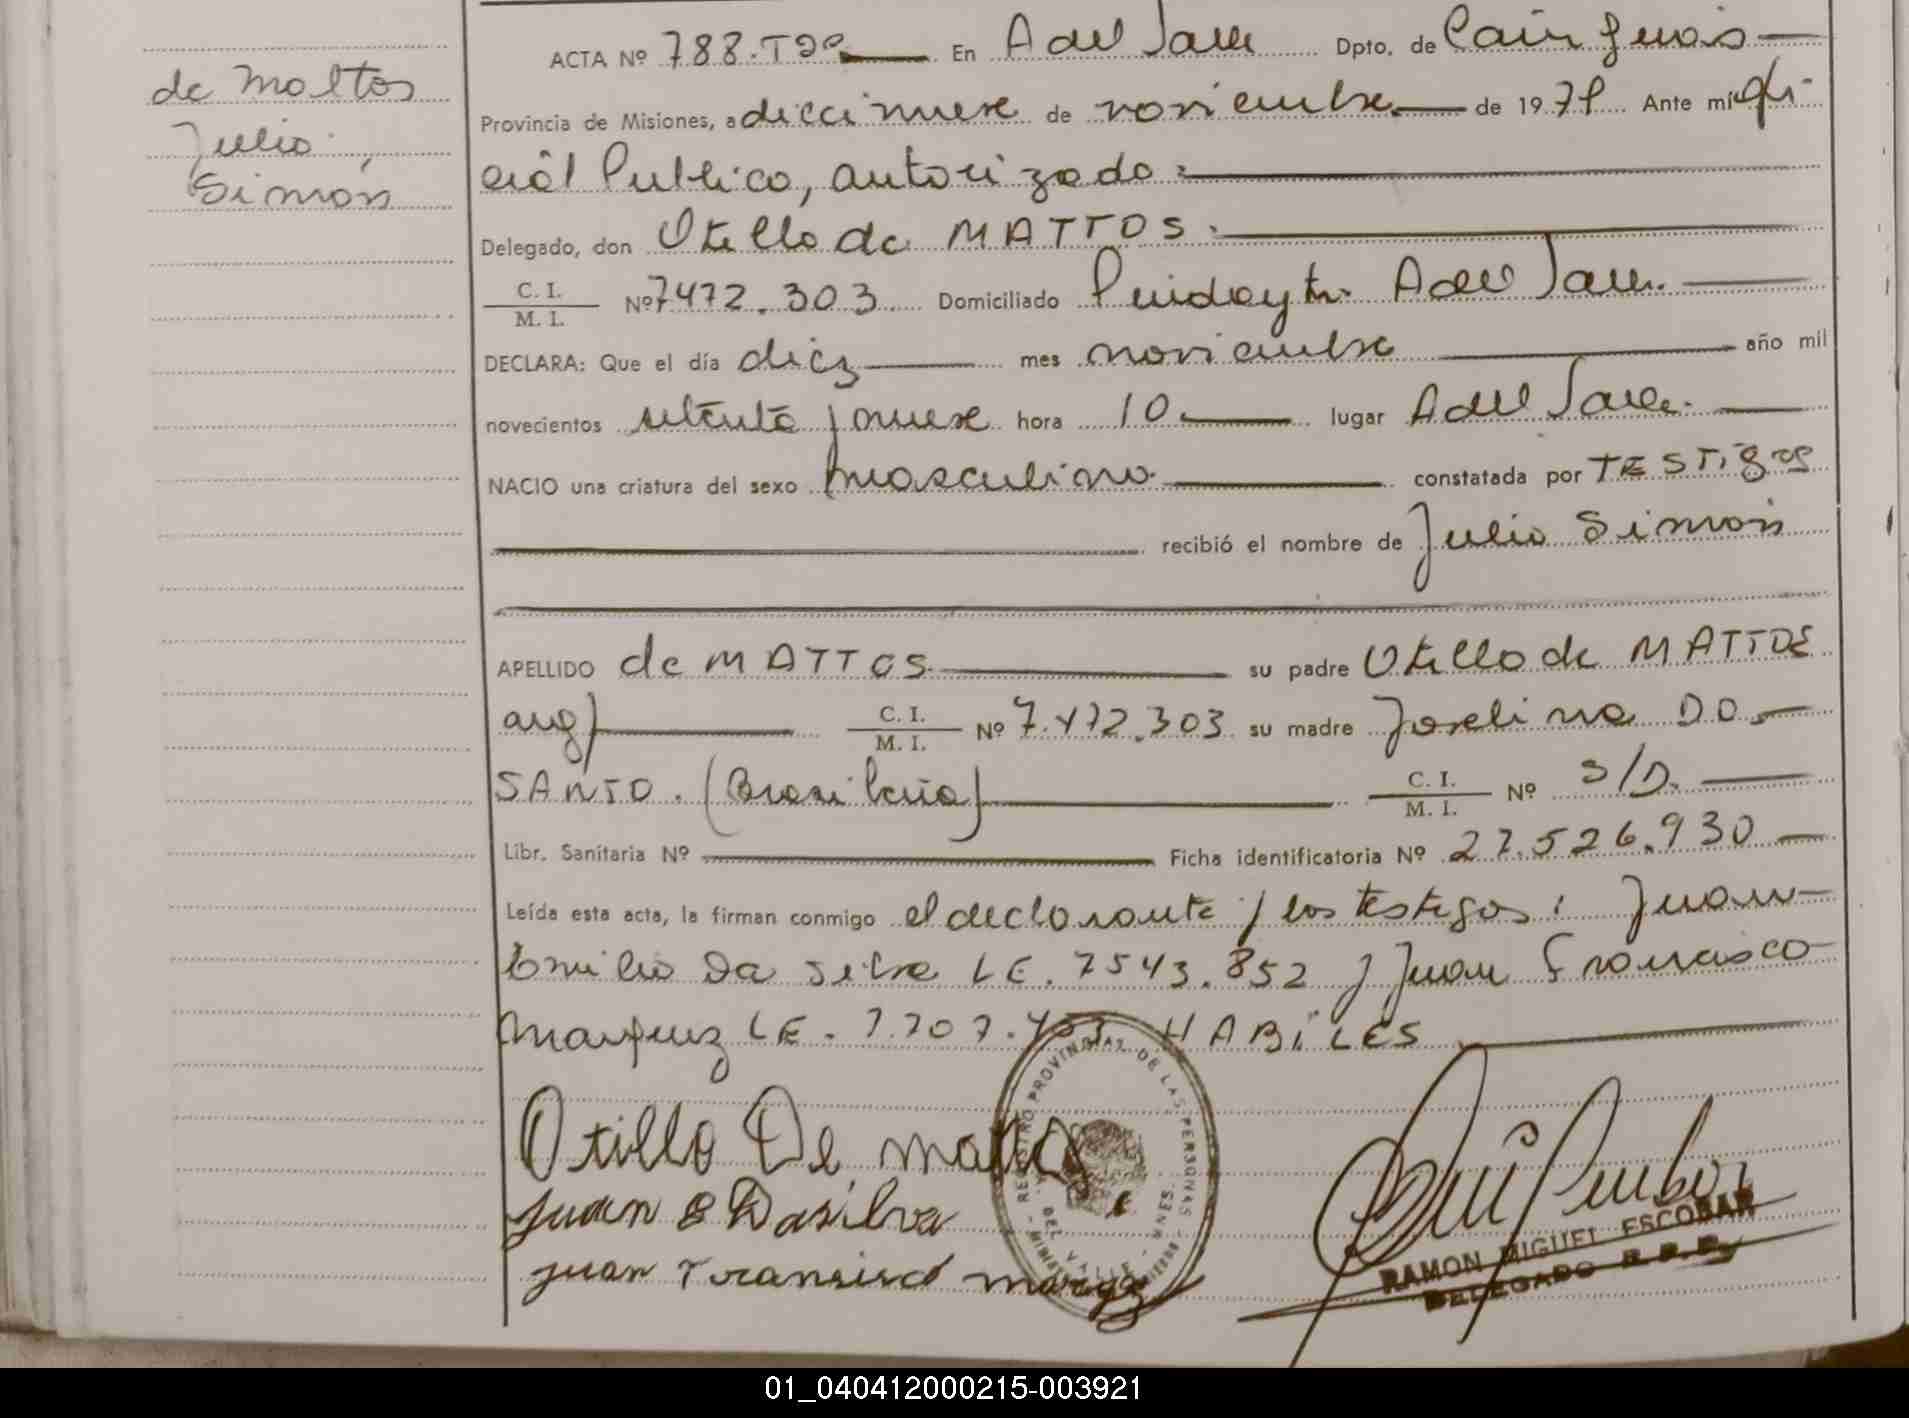 de Mattos
Julio
Simón
ACTA Nº 788. Tº 2º En A del Valle Dpto. de Cainguás
Provincia de Misiones, a diecinueve de noviembre de 1979 Ante mí ofi-
cial Publico, autorizado:
Delegado, don Otillo de MATTOS.
C. I. / M. I. Nº 7472.303 Domiciliado A del Valle.
DECLARA: Que el día diez mes noviembre año mil
novecientos setenta y nueve hora 10 lugar A del Valle.
NACIO una criatura del sexo masculino constatada por TESTigos
recibió el nombre de Julio Simón
APELLIDO de MATTOS su padre Otillo de MATTOS
arg) C. I. / M. I. Nº 7.472.303 su madre Joselina DO
SANTO. (Brasileña) C. I. / M. I. Nº S/D.
Libr. Sanitaria Nº Ficha identificatoria Nº 27.526.930
Leída esta acta, la firman conmigo el declarante y los testigos: Juan
Emilio Da Silva LE. 7543.852 y Juan Francisco
Marquez LE. HABiLES
Otillo De matto
juan E Dasilva
juan Fransisco marqez
REGISTRO PROVINCIAL DE LAS PERSONAS
RAMON MIGUEL ESCOBAR
DELEGADO R.P.P.
01_040412000215-003921